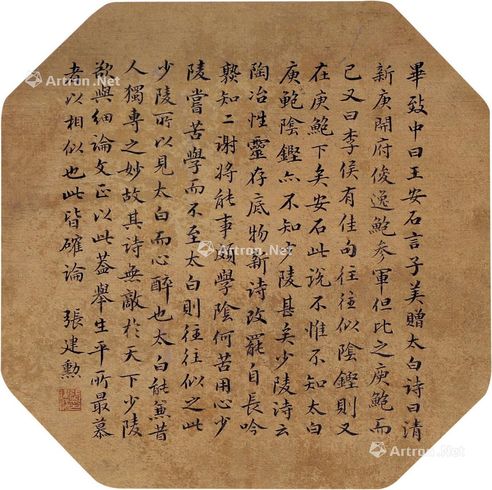 畢致中曰王安石言子美贈太白詩曰清
新庾開府俊逸鮑參軍但比之庾鮑而
已又曰李侯有佳句往往似陰鏗則又
在庾鮑下矣安石此說不惟不知太白
庾鮑陰鏗亦不知少陵甚矣少陵詩云
陶冶性靈存底物新詩改罷自長吟
知二謝將能事頗學陰何苦用心少
陵嘗苦學而不至太白則往往似之此
少陵所以見太白而心醉也太白能兼昔
人獨專之妙故其詩無敵於天下少陵
欲與細論文正以此蓋舉生平所最慕
者以相似也此皆確論 張建勳
Artron.Net
Artron.Net
Artron.Net
Artron.Net
Artron.Net